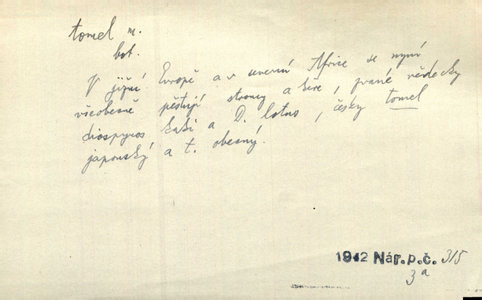 tomel m.
bot.
V jižní Evropě a v severní Africe se nyní
všeobecně pěstují stromy a keře, zvané vědecky
diospyros kaki a D. lotus, česky tomel
japonský a t. obecný.
1942 Nár.p.č. 315
3a